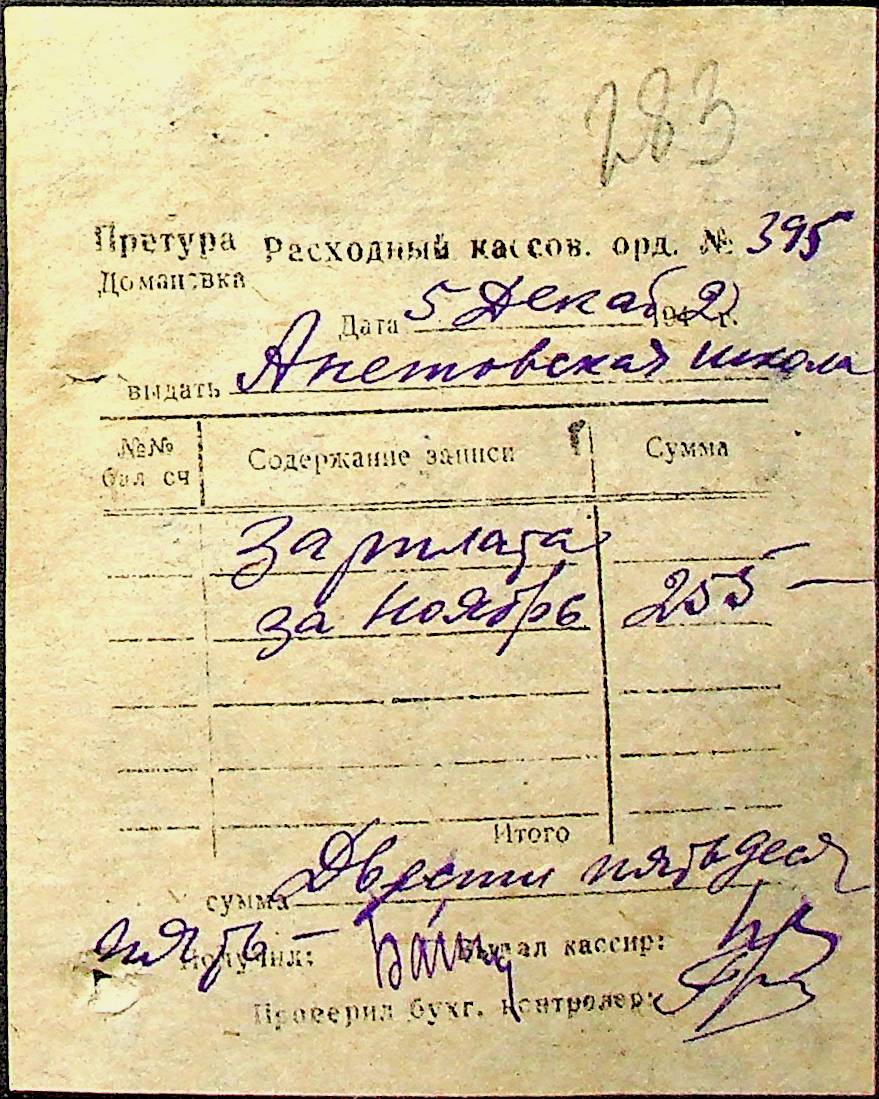 283
Претура Расходный кассов. орд. № 395
Доманевка
Дата 5 Декаб 1942 г.
выдать Акетовская школа
№№ бал сч Содержание записи Сумма
Зарплата
за ноябрь 255 —
Итого
сумма Двести пятьдеся
пять —
Получил: Выдал кассир:
Проверил бухг. контролер: